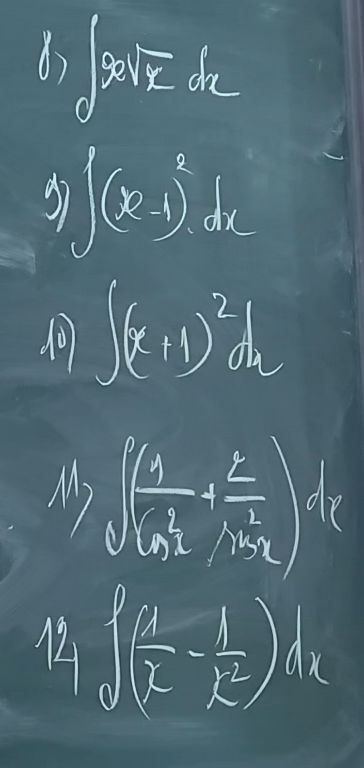 8) ∫x√x dx
9) ∫(x-1)². dx
10) ∫(x+1)² dx
11) ∫(1/cos²x + 2/sin²x) dx
12) ∫(1/x - 1/x²) dx